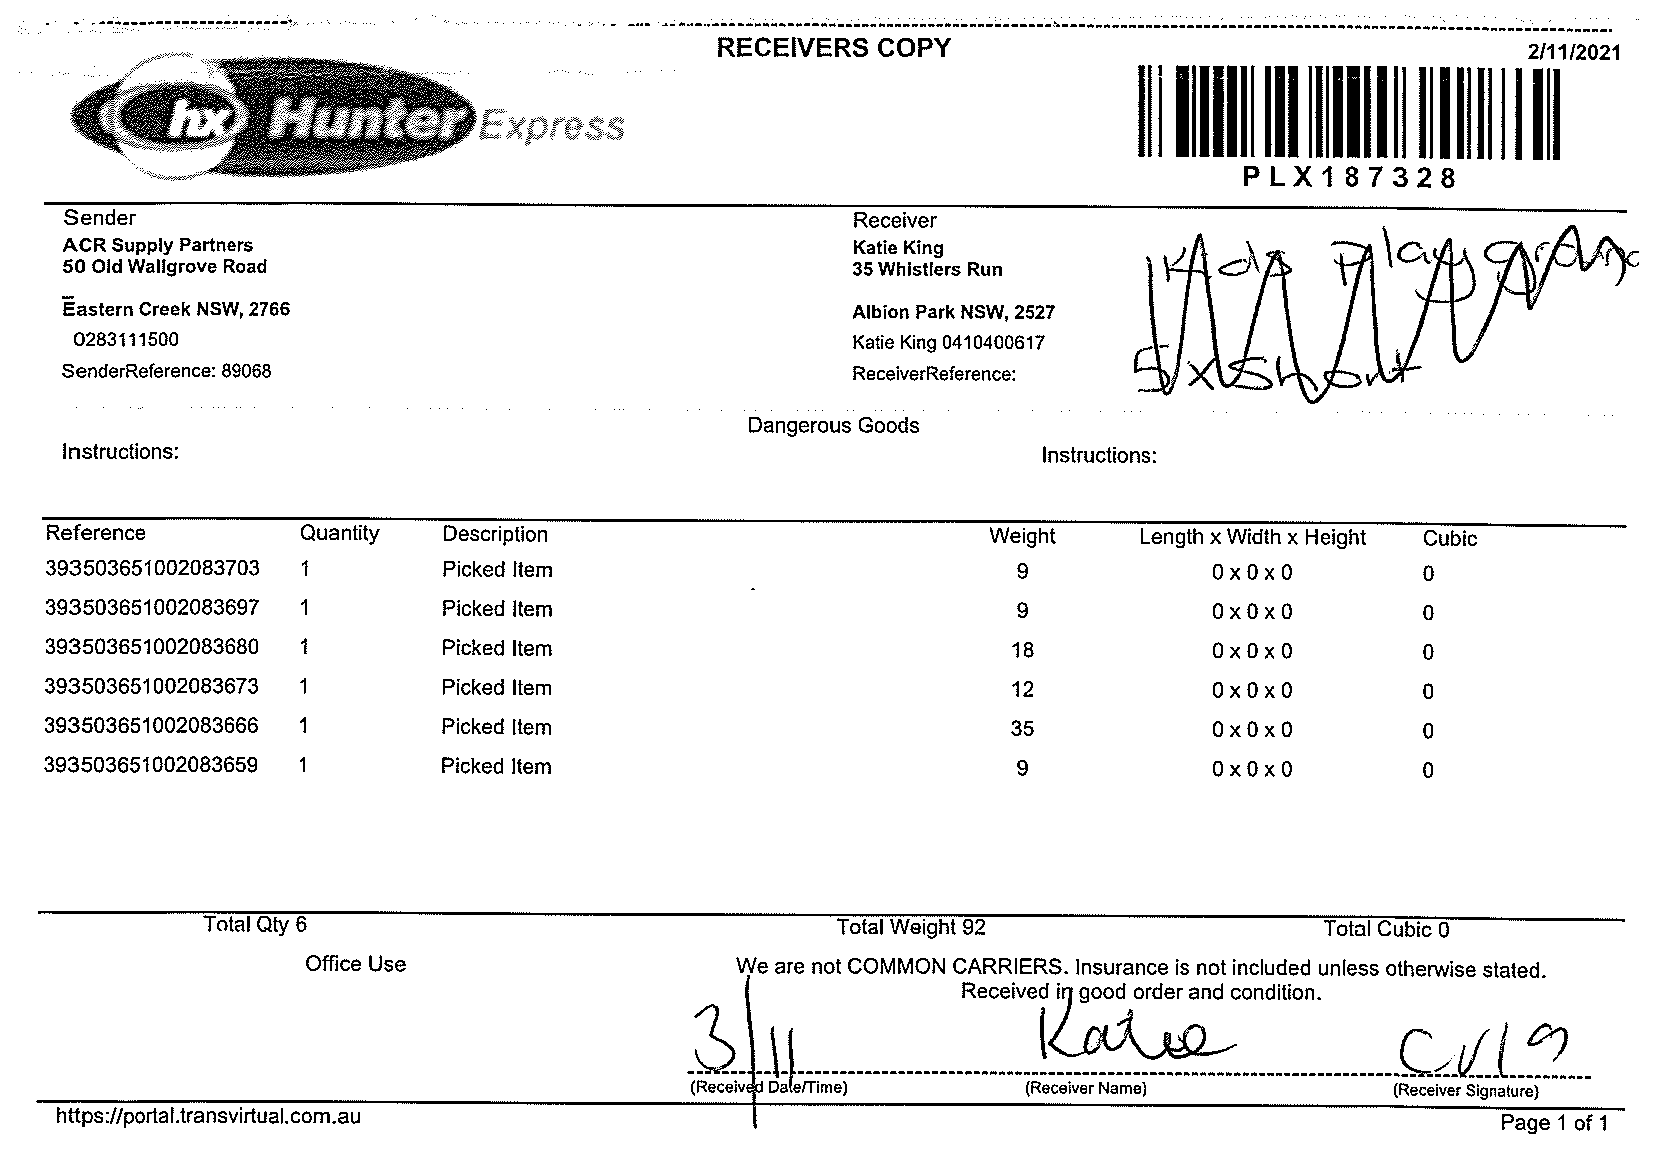 RECEIVERS COPY
2/11/2021
hx Hunter Express
PLX187328
Sender
ACR Supply Partners
50 Old Wallgrove Road
Eastern Creek NSW, 2766
0283111500
SenderReference: 89068
Receiver
Katie King
35 Whistlers Run
Albion Park NSW, 2527
Katie King 0410400617
ReceiverReference:
Kids playground
5 x Short
Dangerous Goods
Instructions:
Instructions:
Reference Quantity Description Weight Length x Width x Height Cubic
393503651002083703 1 Picked Item 9 0 x 0 x 0 0
393503651002083697 1 Picked Item 9 0 x 0 x 0 0
393503651002083680 1 Picked Item 18 0 x 0 x 0 0
393503651002083673 1 Picked Item 12 0 x 0 x 0 0
393503651002083666 1 Picked Item 35 0 x 0 x 0 0
393503651002083659 1 Picked Item 9 0 x 0 x 0 0
Total Qty 6 Total Weight 92 Total Cubic 0
Office Use
We are not COMMON CARRIERS. Insurance is not included unless otherwise stated.
Received in good order and condition.
3/11 Katie CV19
(Received Date/Time) (Receiver Name) (Receiver Signature)
https://portal.transvirtual.com.au
Page 1 of 1